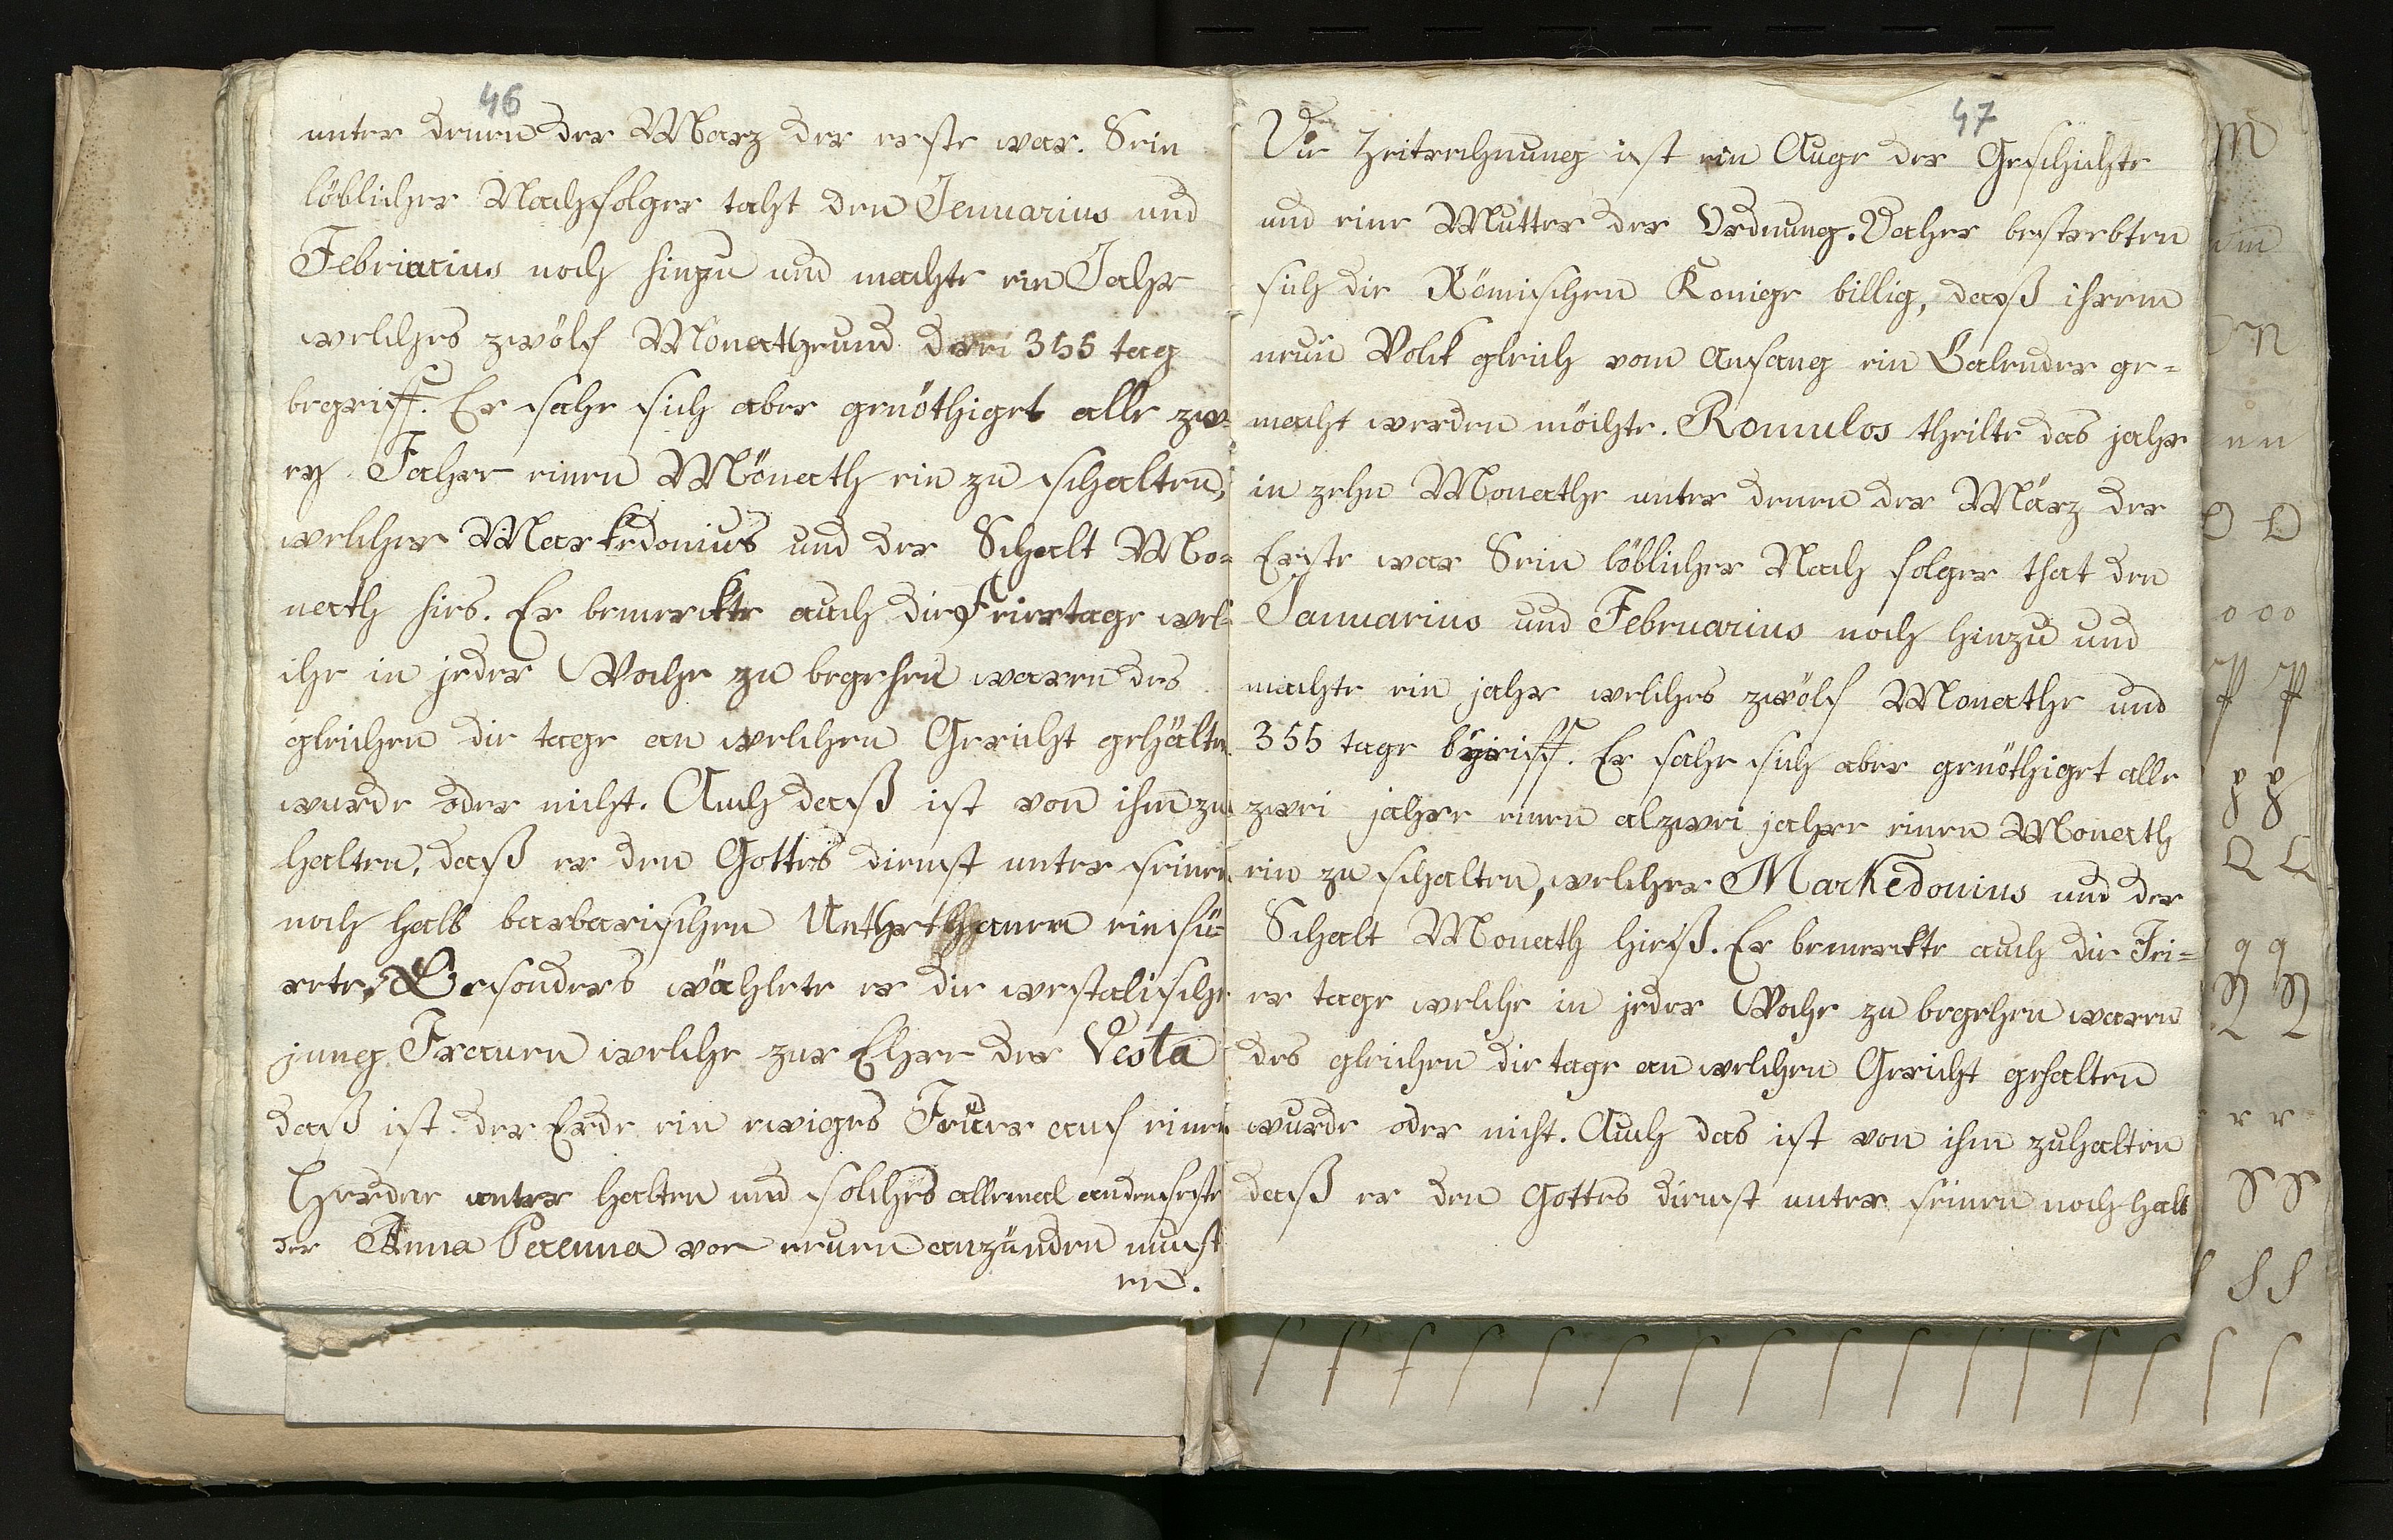 46
unter denen der Marz der erste war. Sein
löblicher Nachfolger taht den Jenuarius und
Febriarius noch hinzu und machte ein Jahr
welches zwölf Monathe und drei 355 tag
begriff. Er sahe sich aber genöthiget alle zw-
ey Jahre einen Mönath ein zu schalten,
welcher Markedonius und der Schalt Mo-
nath hies. Er bemerckte auch die Feiertage wel-
che in jeder Woche zu begehen waren des
gleichen die tage an welchen Gericht gehalten
wurde oder nicht. Auch daß ist von ihm zu
halten, daß er den Gottes dienst unter seinen
noch halb barbarischen Unther thanen einfü-
rete. Besonders wählete er die westalische
jung Frauen welche zur Ehre der Vesta
daß ist der Erde ein ewiges Feuer auf einen
Herde unter halten und solches allemal an den feste
der Anna Perenna von neuen anzünden must
en.
47
Die Zeitrechnung ist ein Auge der Geschichte
und eine Mutter der Ordnung. Daher bestrebten
sich die Römischen Konige billig, daß ihrem
neuen Volk gleich vom anfang ein Calender ge-
macht werden möchte. Romulos theilte das jahr
in zehn Monathe unter denen der März der
Erste war Sein löblicher Nach folger that den
Januarius und Februarius noch hinzu und
machte ein jahr welches zwölf Monathe und
355 tage begriff. Er sahe sich aber genöthiget alle
zwei jahre einen al zwei jahre einen Monath
ein zu schalten, welcher Markedonius und der
Schalt Monath hieß. Er bemerckte auch die Fei-
er tage welche in jeder Woche zu begehen waren
des gleichen die tage an welchen Gericht gehalten
wurde oder nicht. Auch das ist von ihm zuhalten
daß er den Gottes dienst unter seinen noch halb